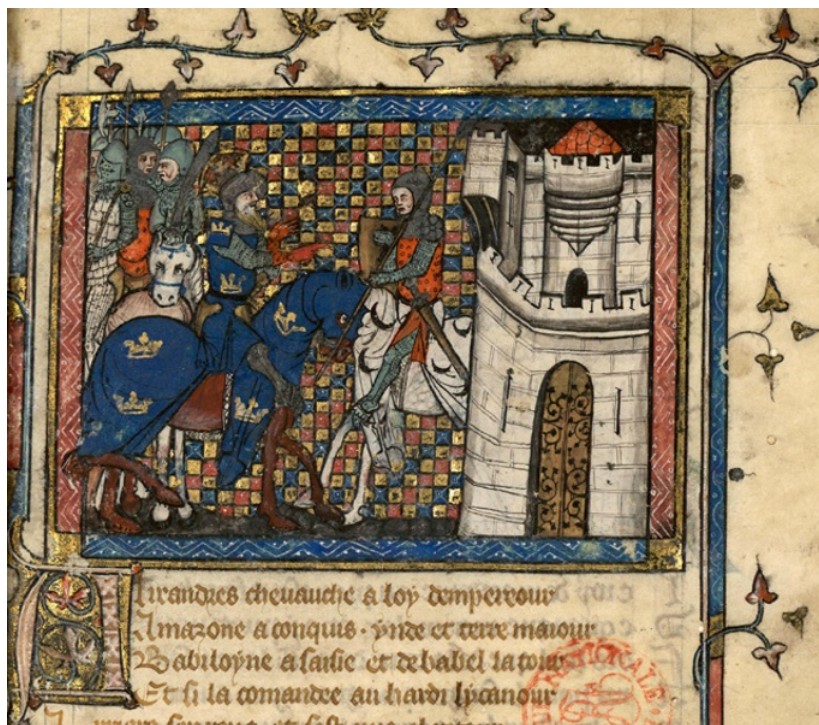 Alixandres chevauche a loy dempereour
Amazone a conquis · ynde et terre maiour
Babiloyne a saisie et de babel la tour
Et si la comandee au hardi lycanour